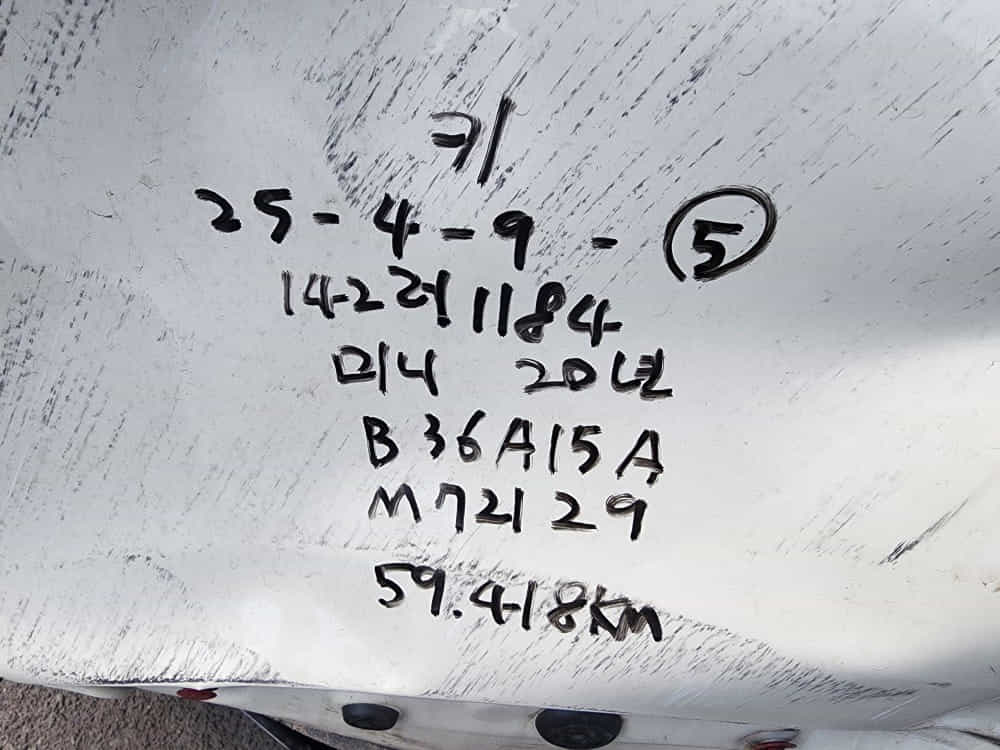 키
25-4-9-⑤
142러1184
미니 20년
B36A15A
M72129
59.418KM